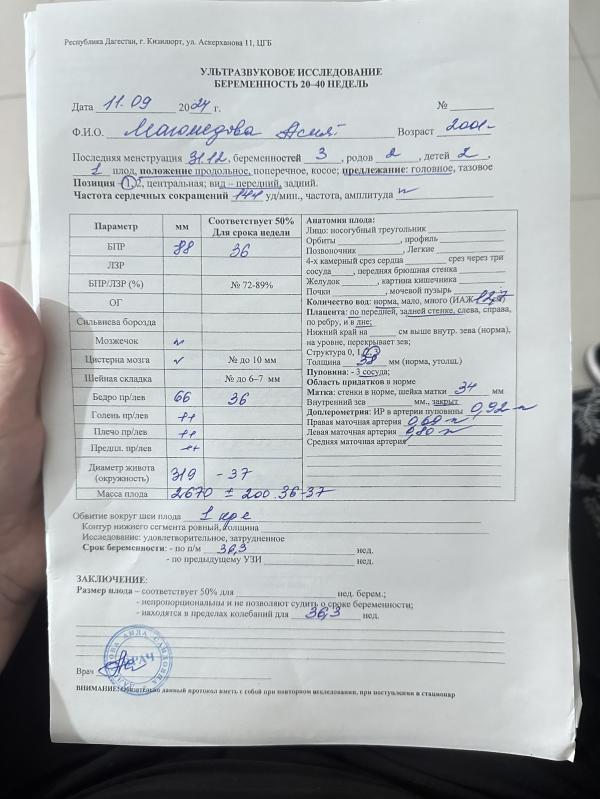 Республика Дагестан, г. Кизилюрт, ул. Аскерханова 11, ЦГБ
УЛЬТРАЗВУКОВОЕ ИССЛЕДОВАНИЕ
БЕРЕМЕННОСТЬ 20–40 НЕДЕЛЬ
Дата 11.09 2024 г. №
Ф.И.О. Магомедова Асият Возраст 2001
Последняя менструация 31.12, беременностей 3, родов 2, детей 2,
1 плод, положение продольное, поперечное, косое; предлежание: головное, тазовое
Позиция – 1, 2, центральная; вид – передний, задний.
Частота сердечных сокращений 144 уд/мин., частота, амплитуда N
Параметр мм Соответствует 50% Для срока недели
БПР 88 36
ЛЗР
БПР/ЛЗР (%) № 72-89%
ОГ
Сильвиева борозда
Мозжечок N
Цистерна мозга № до 10 мм
Шейная складка № до 6–7 мм
Бедро пр/лев 66 36
Голень пр/лев ++
Плечо пр/лев ++
Предпл. пр/лев ++
Диаметр живота (окружность) 319 - 37
Масса плода 2670 ± 200 36-37
Анатомия плода:
Лицо: носогубный треугольник
Орбиты , профиль
Позвоночник , Легкие
4-х камерный срез сердца срез через три
сосуда , передняя брюшная стенка
Желудок , картина кишечника
Почки , мочевой пузырь
Количество вод: норма, мало, много (ИАЖ 127
Плацента: по передней, задней стенке, слева, справа,
по ребру, и в дне;
Нижний край на см выше внутр. зева (норма),
на уровне, перекрывает зев;
Структура 0, 1, 2, 3
Толщина 38 мм (норма, утолщ.)
Пуповина: - 3 сосуда;
Область придатков в норме
Матка: стенки в норме, шейка матки 34 мм
Внутренний зев мм., закрыт
Доплерометрия: ИР в артерии пуповины 0,92 N
Правая маточная артерия 0,69 N
Левая маточная артерия 0,80 N
Средняя маточная артерия
Обвитие вокруг шеи плода 1 кр
Контур нижнего сегмента ровный, толщина
Исследование: удовлетворительное, затрудненное
Срок беременности: - по п/м 36,3 нед.
- по предыдущему УЗИ нед.
ЗАКЛЮЧЕНИЕ:
Размер плода – соответствует 50% для нед. берем.;
- непропорциональны и не позволяют судить о сроке беременности;
- находятся в пределах колебаний для 36,3 нед.
ВРАЧ
Врач
ВНИМАНИЕ: Обязательно данный протокол иметь с собой при повторном исследовании, при поступлении в стационар